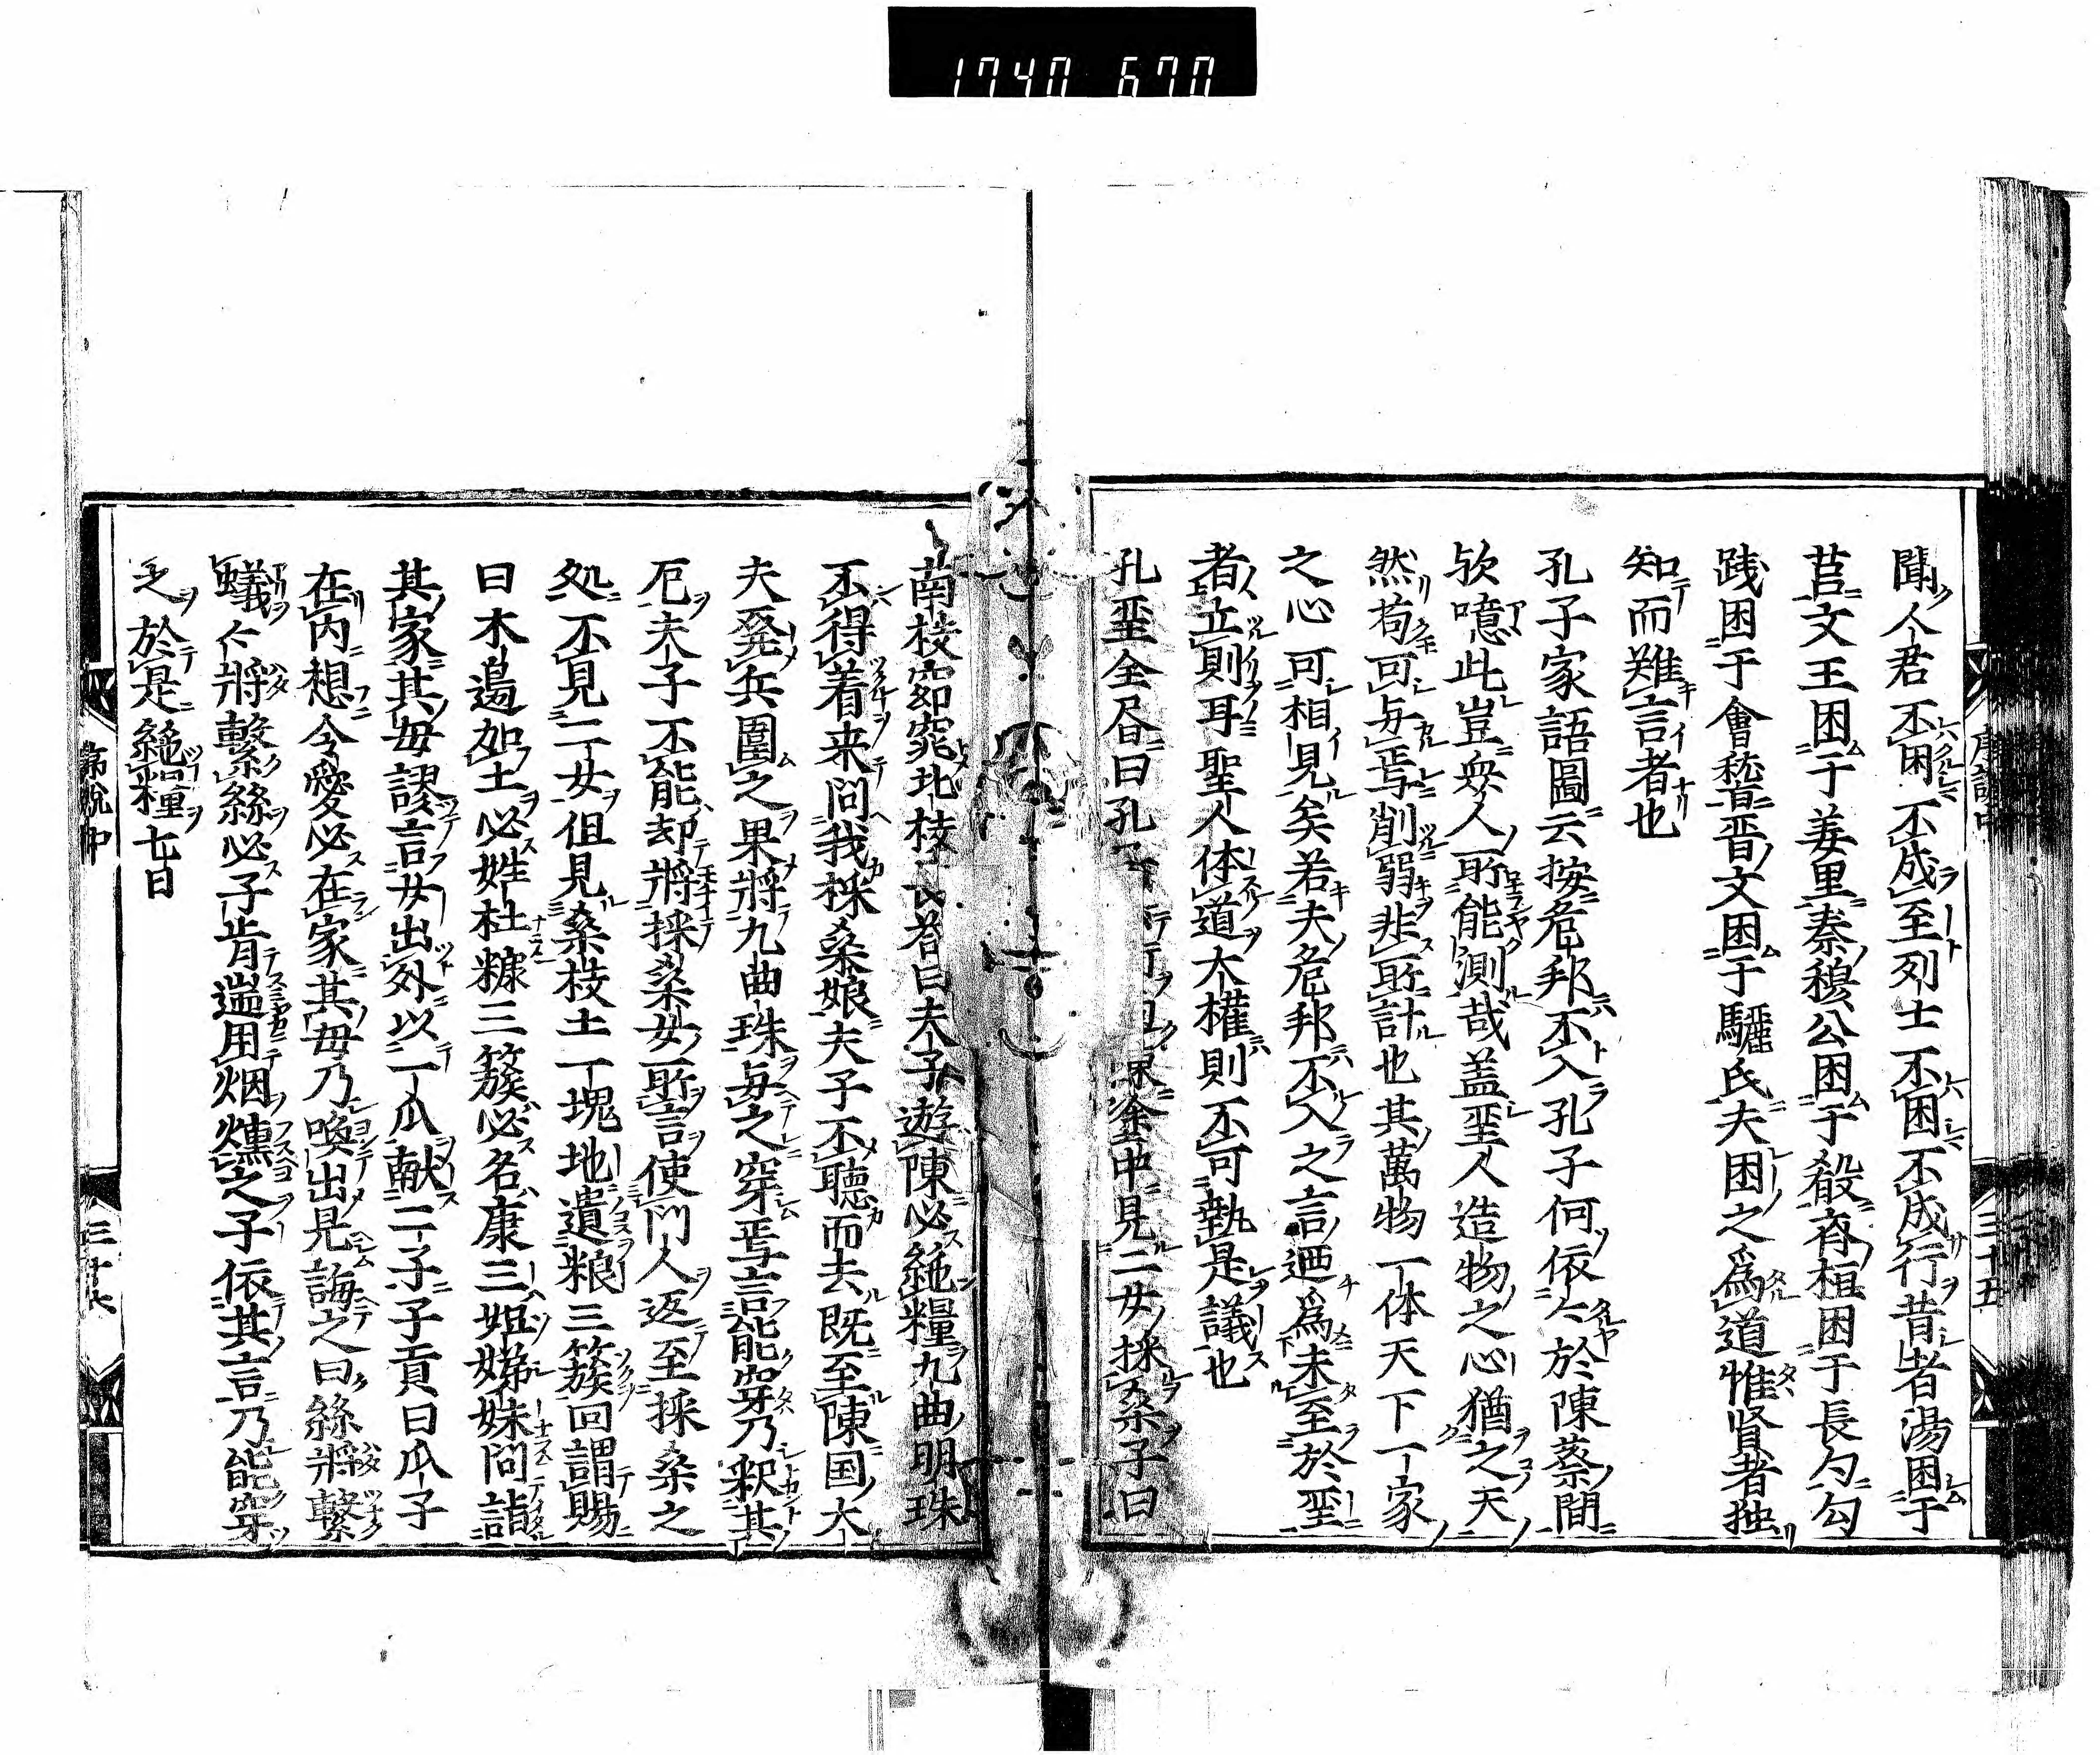 1740 670
聞人君不困不成至列士不困不成行昔者湯困于
莒文王困于羑里秦穆公困于殽斉桓困于長勺勾
践困于會稽晋文困于驪氏夫困之為道惟賢者独
知而難言者也
孔子家語圖云按危邦不入孔子何依々於陳蔡間
欤噫此豈衆人所能測哉盖𦤺人造物之心猶之天
然苟可与焉削弱非所計也其萬物一体天下一家
之心可相見矣若夫危邦不入之言廼為未至於𦤺
者立則耳聖人体道大權則不可執是議也
孔𦤺全昏曰孔 中見二女採桑子曰
南枝窈窕北枝 答曰夫子遊陳必絶糧九曲明珠
不得着来问我採桑娘夫子不聽而去既至陳国大
夫発兵圍之果將九曲珠与之穿焉言能穿乃釈其
厄夫子不能却將採桑女所言使门人返至採桑之
処不見二女但見桑枝土一塊地遺粮三簇回謂賜
曰木邊加土必姓杜糠三簇必名康三姐娣妹问詣
其家其母謬言女出外以一瓜献二子子貢曰瓜子
在内想令愛必在家其母乃喚出見誨之曰絲將繫
蟻々將繫絲必子肯遄用烟燻之子依其言乃能穿
之於是絶糧七日
三十五
三十六